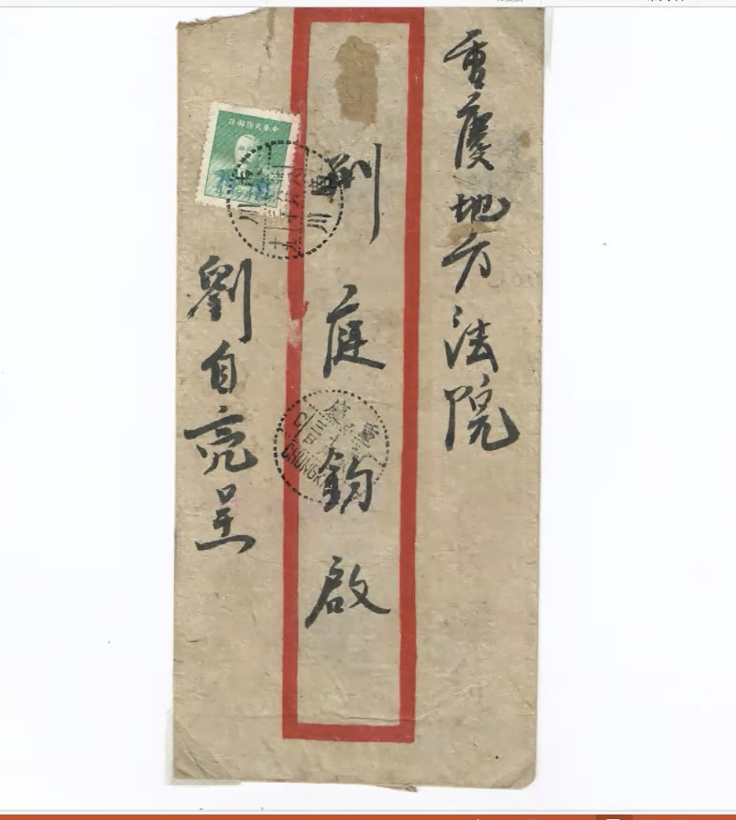 重慶地方法院
荆庭鈞啟
劉自亮呈
中華民國郵政
重慶
CHUNGK